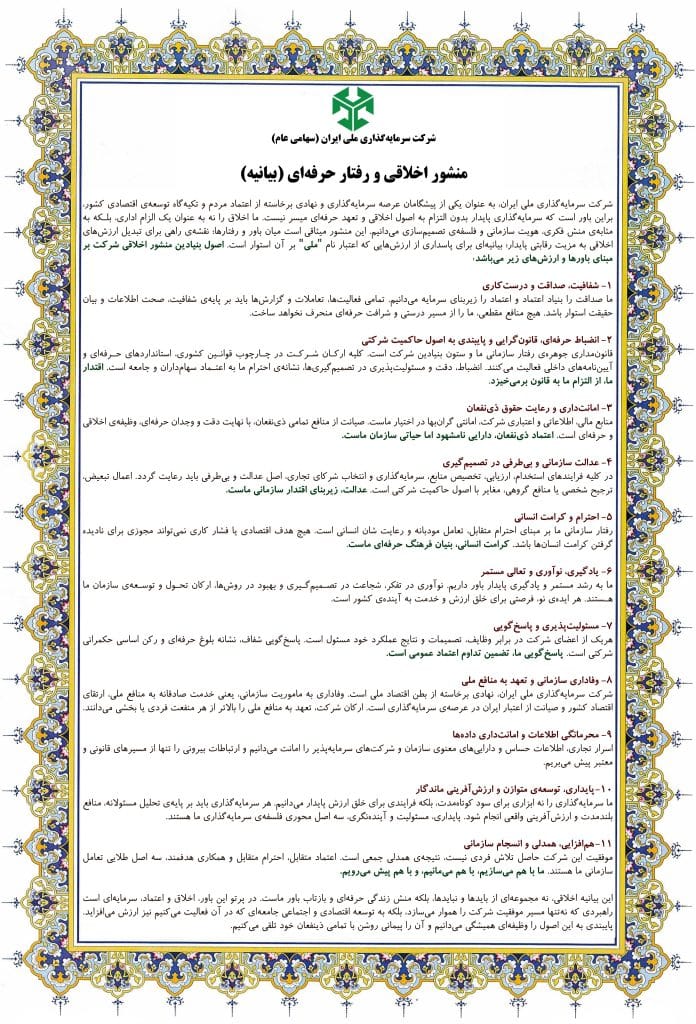 شرکت سرمایه‌گذاری ملی ایران (سهامی عام)
منشور اخلاقی و رفتار حرفه‌ای (بیانیه)
شرکت سرمایه‌گذاری ملی ایران، به عنوان یکی از پیشگامان عرصه سرمایه‌گذاری و نهادی برخاسته از اعتماد مردم و تکیه‌گاه توسعه‌ی اقتصادی کشور،
براین باور است که سرمایه‌گذاری پایدار بدون التزام به اصول اخلاقی و تعهد حرفه‌ای میسر نیست. ما اخلاق را نه به عنوان یک الزام اداری، بلکه به
مثابه‌ی منش فکری، هویت سازمانی و فلسفه‌ی تصمیم‌سازی می‌دانیم. این منشور میثاقی است میان باور و رفتارها؛ نقشه‌ی راهی برای تبدیل ارزش‌های
اخلاقی به مزیت رقابتی پایدار؛ بیانیه‌ای برای پاسداری از ارزش‌هایی که اعتبار نام "ملی" بر آن استوار است. اصول بنیادین منشور اخلاقی شرکت بر
مبنای باورها و ارزش‌های زیر می‌باشد؛
۱- شفافیت، صداقت و درست‌کاری
ما صداقت را بنیاد اعتماد و اعتماد را زیربنای سرمایه می‌دانیم. تمامی فعالیت‌ها، تعاملات و گزارش‌ها باید بر پایه‌ی شفافیت، صحت اطلاعات و بیان
حقیقت استوار باشد. هیچ منافع مقطعی، ما را از مسیر درستی و شرافت حرفه‌ای منحرف نخواهد ساخت.
۲- انضباط حرفه‌ای، قانون‌گرایی و پایبندی به اصول حاکمیت شرکتی
قانون‌مداری جوهره‌ی رفتار سازمانی ما و ستون بنیادین شرکت است. کلیه ارکان شرکت در چارچوب قوانین کشوری، استانداردهای حرفه‌ای و
آیین‌نامه‌های داخلی فعالیت می‌کنند. انضباط، دقت و مسئولیت‌پذیری در تصمیم‌گیری‌ها، نشانه‌ی احترام ما به اعتماد سهام‌داران و جامعه است. اقتدار
ما، از التزام ما به قانون برمی‌خیزد.
۳- امانت‌داری و رعایت حقوق ذی‌نفعان
منابع مالی، اطلاعاتی و اعتباری شرکت، امانتی گران‌بها در اختیار ماست. صیانت از منافع تمامی ذی‌نفعان، با نهایت دقت و وجدان حرفه‌ای، وظیفه‌ی اخلاقی
و حرفه‌ای است. اعتماد ذی‌نفعان، دارایی نامشهود اما حیاتی سازمان ماست.
۴- عدالت سازمانی و بی‌طرفی در تصمیم‌گیری
در کلیه فرایندهای استخدام، ارزیابی، تخصیص منابع، سرمایه‌گذاری و انتخاب شرکای تجاری، اصل عدالت و بی‌طرفی باید رعایت گردد. اعمال تبعیض،
ترجیح شخصی یا منافع گروهی، مغایر با اصول حاکمیت شرکتی است. عدالت، زیربنای اقتدار سازمانی ماست.
۵- احترام و کرامت انسانی
رفتار سازمانی ما بر مبنای احترام متقابل، تعامل مودبانه و رعایت شان انسانی است. هیچ هدف اقتصادی یا فشار کاری نمی‌تواند مجوزی برای نادیده
گرفتن کرامت انسان‌ها باشد. کرامت انسانی، بنیان فرهنگ حرفه‌ای ماست.
۶- یادگیری، نوآوری و تعالی مستمر
ما به رشد مستمر و یادگیری پایدار باور داریم. نوآوری در تفکر، شجاعت در تصمیم‌گیری و بهبود در روش‌ها، ارکان تحول و توسعه‌ی سازمان ما
هستند. هر ایده‌ی نو، فرصتی برای خلق ارزش و خدمت به آینده‌ی کشور است.
۷- مسئولیت‌پذیری و پاسخ‌گویی
هریک از اعضای شرکت در برابر وظایف، تصمیمات و نتایج عملکرد خود مسئول است. پاسخ‌گویی شفاف، نشانه بلوغ حرفه‌ای و رکن اساسی حکمرانی
شرکتی است. پاسخ‌گویی ما، تضمین تداوم اعتماد عمومی است.
۸- وفاداری سازمانی و تعهد به منافع ملی
شرکت سرمایه‌گذاری ملی ایران، نهادی برخاسته از بطن اقتصاد ملی است. وفاداری به ماموریت سازمانی، یعنی خدمت صادقانه به منافع ملی، ارتقای
اقتصاد کشور و صیانت از اعتبار ایران در عرصه‌ی سرمایه‌گذاری است. ارکان شرکت، تعهد به منافع ملی را بالاتر از هر منفعت فردی یا بخشی می‌دانند.
۹- محرمانگی اطلاعات و امانت‌داری داده‌ها
اسرار تجاری، اطلاعات حساس و دارایی‌های معنوی سازمان و شرکت‌های سرمایه‌پذیر را امانت می‌دانیم و ارتباطات بیرونی را تنها از مسیرهای قانونی و
معتبر پیش می‌بریم.
۱۰- پایداری، توسعه‌ی متوازن و ارزش‌آفرینی ماندگار
ما سرمایه‌گذاری را نه ابزاری برای سود کوتاه‌مدت، بلکه فرایندی برای خلق ارزش پایدار می‌دانیم. هر سرمایه‌گذاری باید بر پایه‌ی تحلیل مسئولانه، منافع
بلندمدت و ارزش‌آفرینی واقعی انجام شود. پایداری، مسئولیت و آینده‌نگری، سه اصل محوری فلسفه‌ی سرمایه‌گذاری ما هستند.
۱۱- هم‌افزایی، همدلی و انسجام سازمانی
موفقیت این شرکت حاصل تلاش فردی نیست، نتیجه‌ی همدلی جمعی است. اعتماد متقابل، احترام متقابل و همکاری هدفمند، سه اصل طلایی تعامل
سازمانی ما هستند. ما با هم می‌سازیم، با هم می‌مانیم، و با هم پیش می‌رویم.
این بیانیه اخلاقی، نه مجموعه‌ای از بایدها و نبایدها، بلکه منش زندگی حرفه‌ای و بازتاب باور ماست. در پرتو این باور، اخلاق و اعتماد، سرمایه‌ای است
راهبردی که نه‌تنها مسیر موفقیت شرکت را هموار می‌سازد، بلکه به توسعه اقتصادی و اجتماعی جامعه‌ای که در آن فعالیت می‌کنیم نیز ارزش می‌افزاید.
پایبندی به این اصول را وظیفه‌ای همیشگی می‌دانیم و آن را پیمانی روشن با تمامی ذینفعان خود تلقی می‌کنیم.